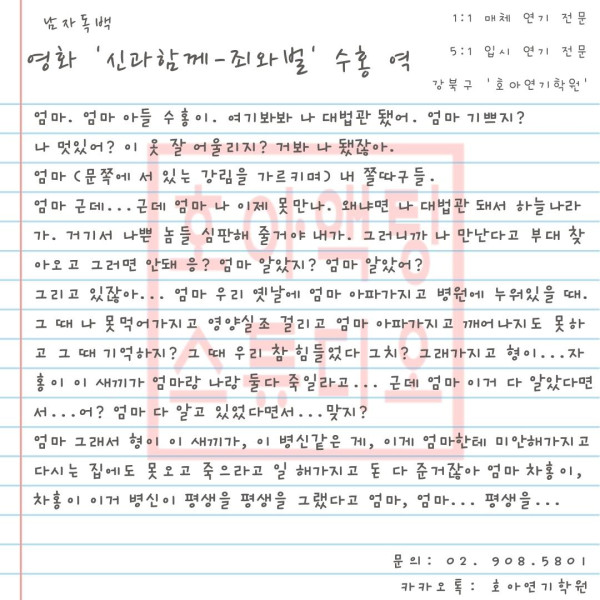 남자독백
1:1 매체 연기 전문
영화 '신과함께-죄와벌' 수홍 역
5:1 입시 연기 전문
강북구 '호아연기학원'
엄마. 엄마 아들 수홍이. 여기봐봐 나 대법관 됐어. 엄마 기쁘지?
나 멋있어? 이 옷 잘 어울리지? 거봐 나 됐잖아.
엄마 (문쪽에 서 있는 강림을 가르키며) 내 쫄따구들.
엄마 근데...근데 엄마 나 이제 못만나. 왜냐면 나 대법관 돼서 하늘나라
가. 거기서 나쁜 놈들 심판해 줄거야 내가. 그러니까 나 만난다고 부대 찾
아오고 그러면 안돼 응? 엄마 알았지? 엄마 알았어?
그리고 있잖아... 엄마 우리 옛날에 엄마 아파가지고 병원에 누워있을 때.
그 때 나 못먹어가지고 영양실조 걸리고 엄마 아파가지고 깨어나지도 못하
고 그 때 기억하지? 그 때 우리 참 힘들었다 그치? 그래가지고 형이...자
홍이 이 새끼가 엄마랑 나랑 둘다 죽일라고... 근데 엄마 이거 다 알았다면
서...어? 엄마 다 알고 있었다면서...맞지?
엄마 그래서 형이 이 새끼가, 이 병신같은 게, 이게 엄마한테 미안해가지고
다시는 집에도 못오고 죽으라고 일 해가지고 돈 다 준거잖아 엄마 차홍이,
차홍이 이거 병신이 평생을 평생을 그랬다고 엄마, 엄마... 평생을...
호아액팅
스튜디오
문의: 02. 908.5801
카카오톡: 호아연기학원